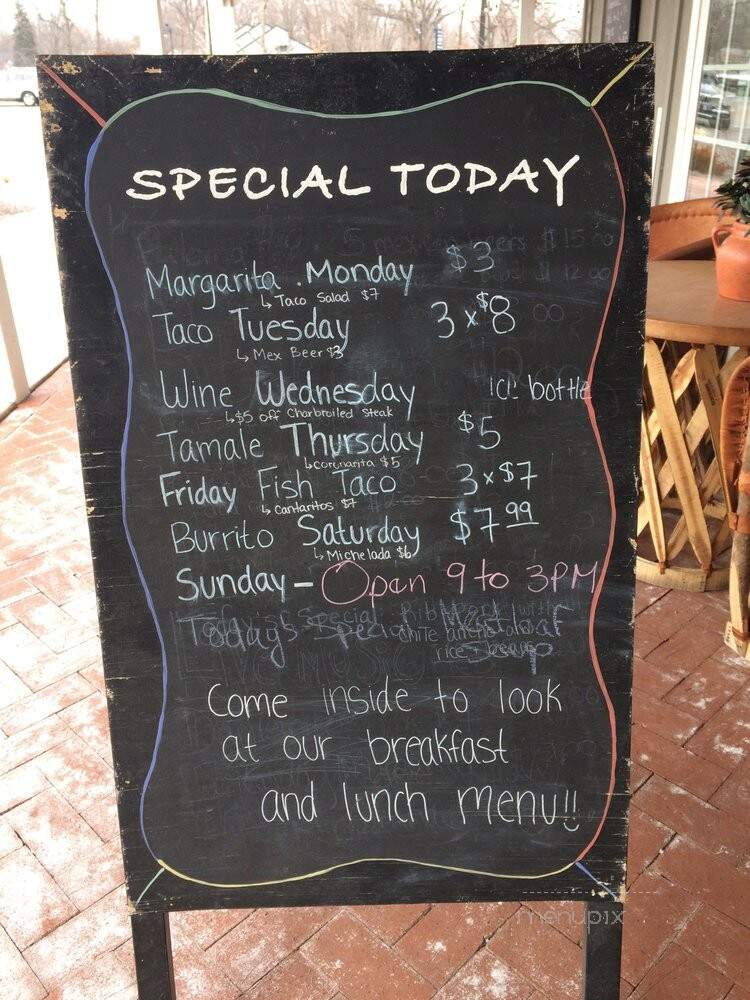 SPECIAL TODAY
5 mex beers $15.00
12.00
Margarita . Monday $3
↳ Taco Salad $7
Taco Tuesday 3 x $8
↳ Mex Beer $3
Wine Wednesday bottle
↳ $5 off Charbroiled Steak
Tamale Thursday $5
↳ coronarita $5
Friday Fish Taco 3 x $7
↳ cantaritos $7
Burrito Saturday $7 99
↳ Michelada $6
Sunday - Open 9 to 3PM
Today's Special
Today's Special
rice beans
Come inside to look
at our breakfast
and lunch menu!!
menupix